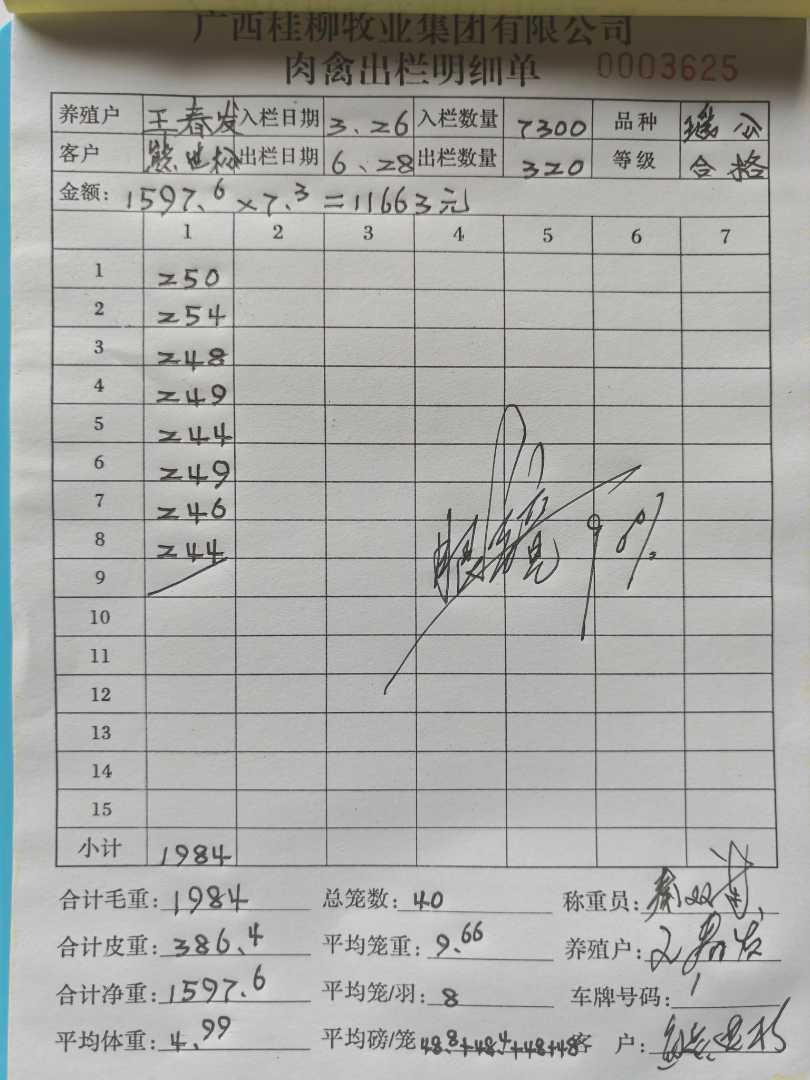 广西桂柳牧业集团有限公司
肉禽出栏明细单 0003625
养殖户 王春发 入栏日期 3.26 入栏数量 7300 品种 瑶公
客户 熊世林 出栏日期 6.28 出栏数量 320 等级 合格
金额: 1597.6×7.3=11663元
1 2 3 4 5 6 7
1 250
2 254
3 248
4 249
5 244
6 249
7 246
8 244
9
10
11
12
13
14
15
小计 1984
90%
合计毛重: 1984 总笼数: 40 称重员:
合计皮重: 386.4 平均笼重: 9.66 养殖户: 王春发
合计净重: 1597.6 平均笼/羽: 8 车牌号码:
平均体重: 4.99 平均磅/笼 48.8+48.4+48+48 客户: